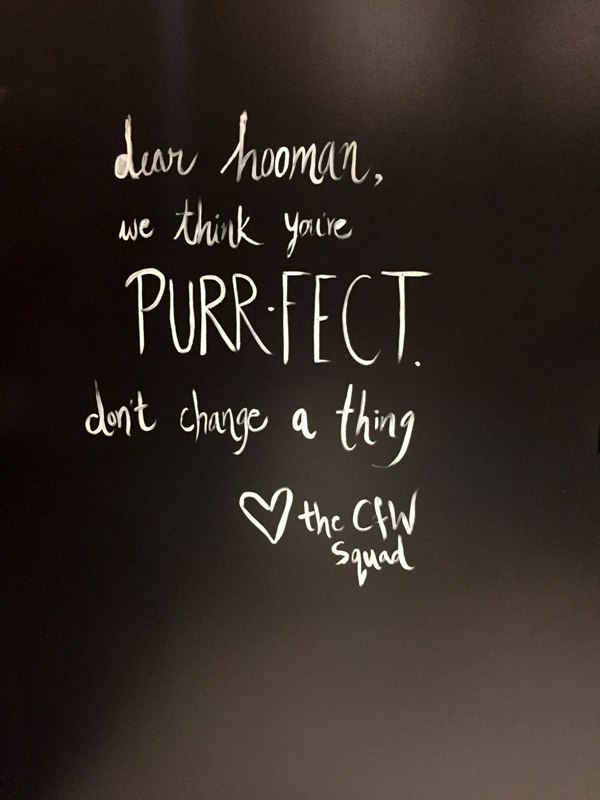 dear hooman,
we think you're
PURR-FECT.
don't change a thing
♡ the CfW
squad